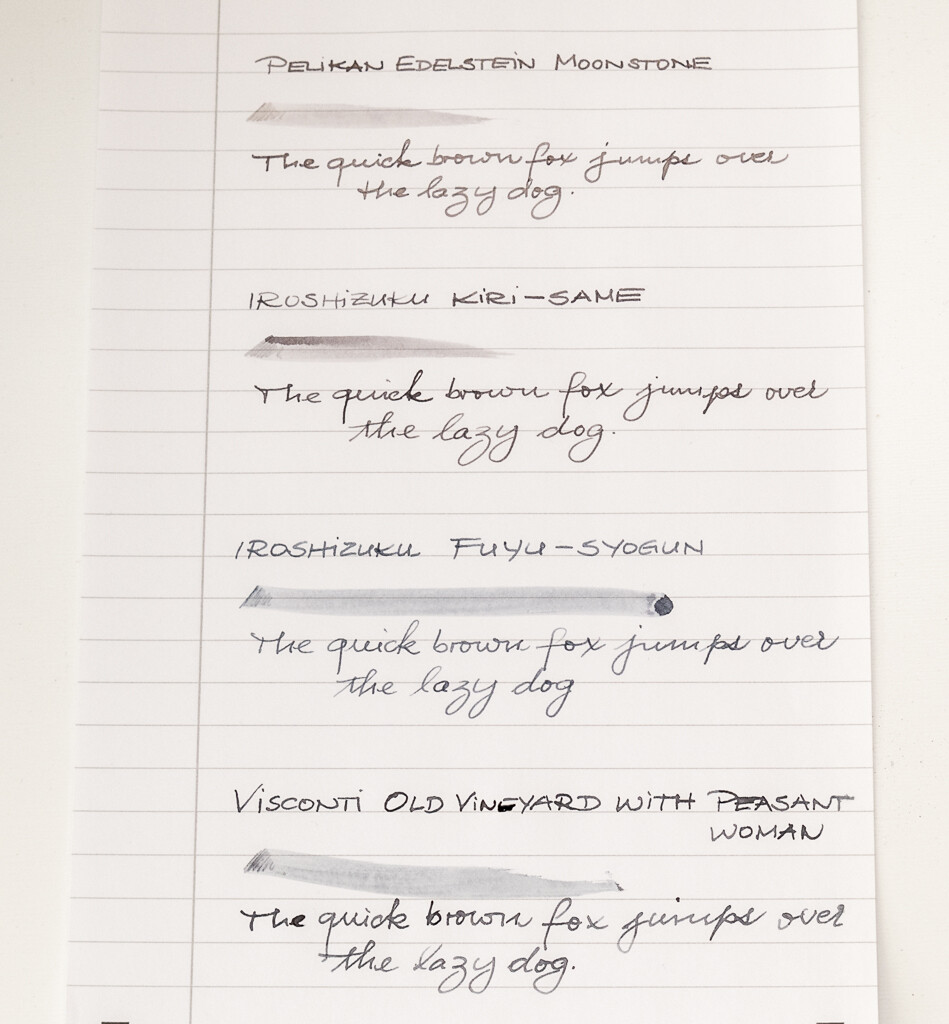 PELIKAN EDELSTEIN MOONSTONE
The quick brown fox jumps over
the lazy dog.
IROSHIZUKU KIRI-SAME
The quick brown fox jumps over
the lazy dog.
IROSHIZUKU FUYU-SYOGUN
The quick brown fox jumps over
the lazy dog
VISCONTI OLD VINEYARD WITH PEASANT
WOMAN
The quick brown fox jumps over
the lazy dog.